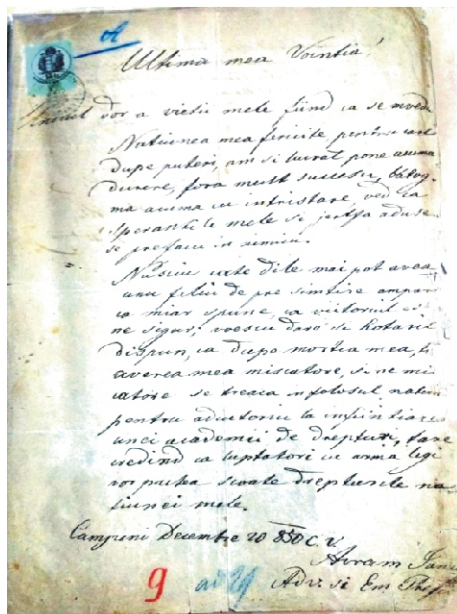 Ultima mea Vointia!
Unicul dor a vietii mele fiind ca se mi ved
Natiunea mea fericite pentru care
dupe puteri, am si lucrat pone acuma
durere, fora mult succesu, bătog-
ma acuma cu intristare, ved, ca
sperantile mele si jertfa aduse
se prefacu in nimicu.
Nu sciu cate dile mai pot avea
unu feliu de pre simtire
ca miar spune, ca viitoriul
ne sigur, voescu dara si hotaritu
dispun, ca dupo mortea mea,
averea mea miscatore, si ne mi
catore se treaca in folosul
pentru adiutoriu la infiintiarea
unei academii de drepturi, tare
credind ca luptatori cu arma legi
vor putea scoate drepturile na
tiunei mele.
Campeni Decembre 20 850 C. V.
Avram Iancu
Adv. si Em
9 ad 29